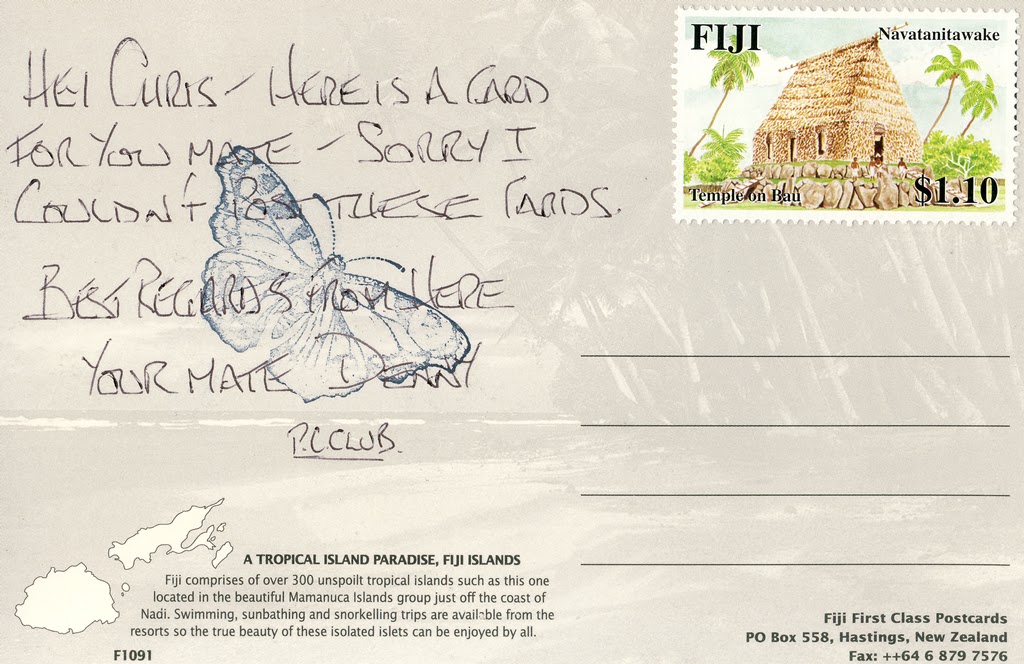 HEY CHRIS - HERE IS A CARD
FOR YOU MATE - SORRY I
COULDN'T POST THESE CARDS.
BEST REGARDS FROM HERE
YOUR MATE DENNY
P.C.CLUB.
FIJI
Navatanitawake
Temple on Bau
$1.10
A TROPICAL ISLAND PARADISE, FIJI ISLANDS
Fiji comprises of over 300 unspoilt tropical islands such as this one
located in the beautiful Mamanuca Islands group just off the coast of
Nadi. Swimming, sunbathing and snorkelling trips are available from the
resorts so the true beauty of these isolated islets can be enjoyed by all.
F1091
Fiji First Class Postcards
PO Box 558, Hastings, New Zealand
Fax: ++64 6 879 7576